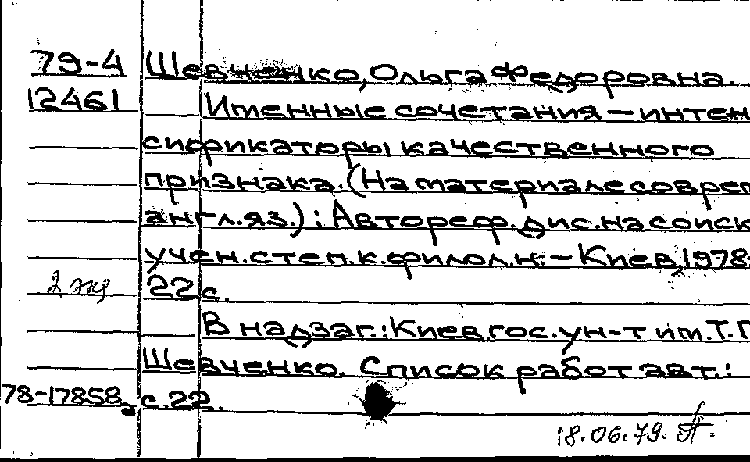 79-4 Шевченко, Ольга Федоровна.
12461 Именные сочетания — интен
сификаторы качественного
признака. (На материале соврем
англ. яз.) : Автореф. дис. на соиск
учен. степ. к. филол. н. — Киев, 1978
2 экз 22 с.
В надзаг.: Киев. гос. ун-т им. Т. Г
Шевченко. Список работ авт.:
78-17858 с. 22.
18.06.79.